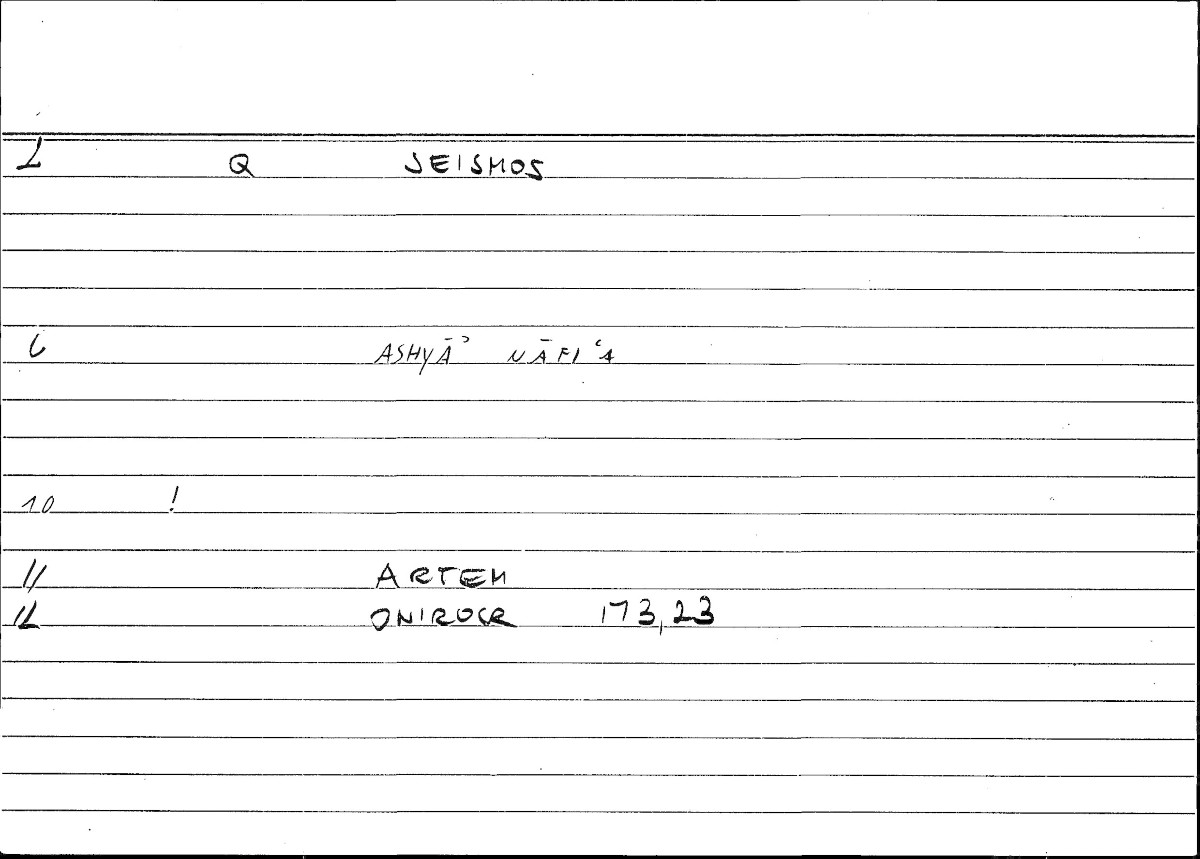 2 Q SEISMOS
6 ASHYĀʾ NĀFIʿA
10 !
11 ARTEM
12 ONIROCR 173,23